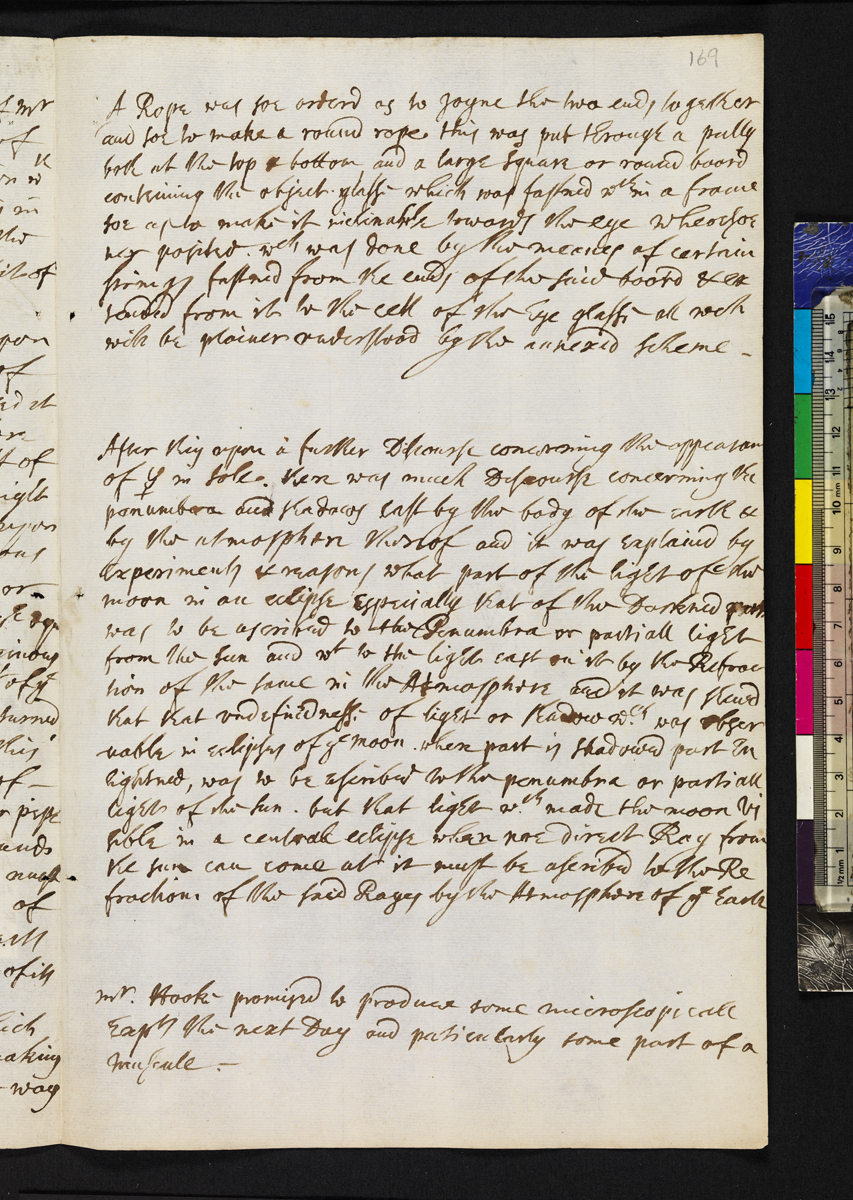 169
A Rope was soe orderd as to Joyne the two ends together
and soe to make a round rope. this was put through a pully
both at the top & bottom and a large square or round board
contening the object glasse which was fastned wth in a frame
soe as to make it inclinable towards the eye whersoe
ner posited. wch was done by the meanes of certain
strings fastned from the ends of the said board & ex
tended from it to the cell of the Eye glasse all wch
will be plainer understood by the annexed scheme -
After this upon a further Discourse concerning the appearanc
of ☿ in sole. there was much Discourse concerning the
penumbra and shadows cast by the body of the earth &
by the atmosphere therof and it was Explained by
Experiments & reasons what part of the light of the
moon in an eclipse Especially that of the Darkned part
was to be ascribed to the Penumbra or partiall light
from the sun and wt to the light cast on it by the Refrac
tion of the same in the Atmosphere and it was shewd
that that undefinednesse of light or shadow wch was obser
uable in eclipses of ye moon. when part is shadowed part En
lightned, was to be ascribed to the penumbra or partiall
light of the sun. but that light wch made the moon Vi
sible in a centrall eclipse when noe direct Ray from
the sun can come at it must be ascribed to the Re
fraction of the said Rayes by the Atmosphere of ye Earth
mr. Hooke promised to produce some microscopicall
Expts the next Day and paticularly some part of a
muscule. -